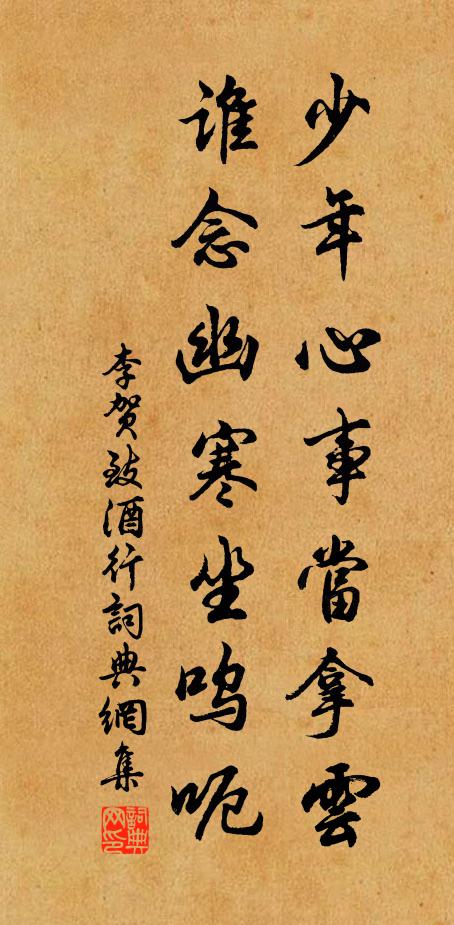 少年心事當拿雲
誰念幽寒坐呜呃
李贺致酒行詞典網集
詞典网印